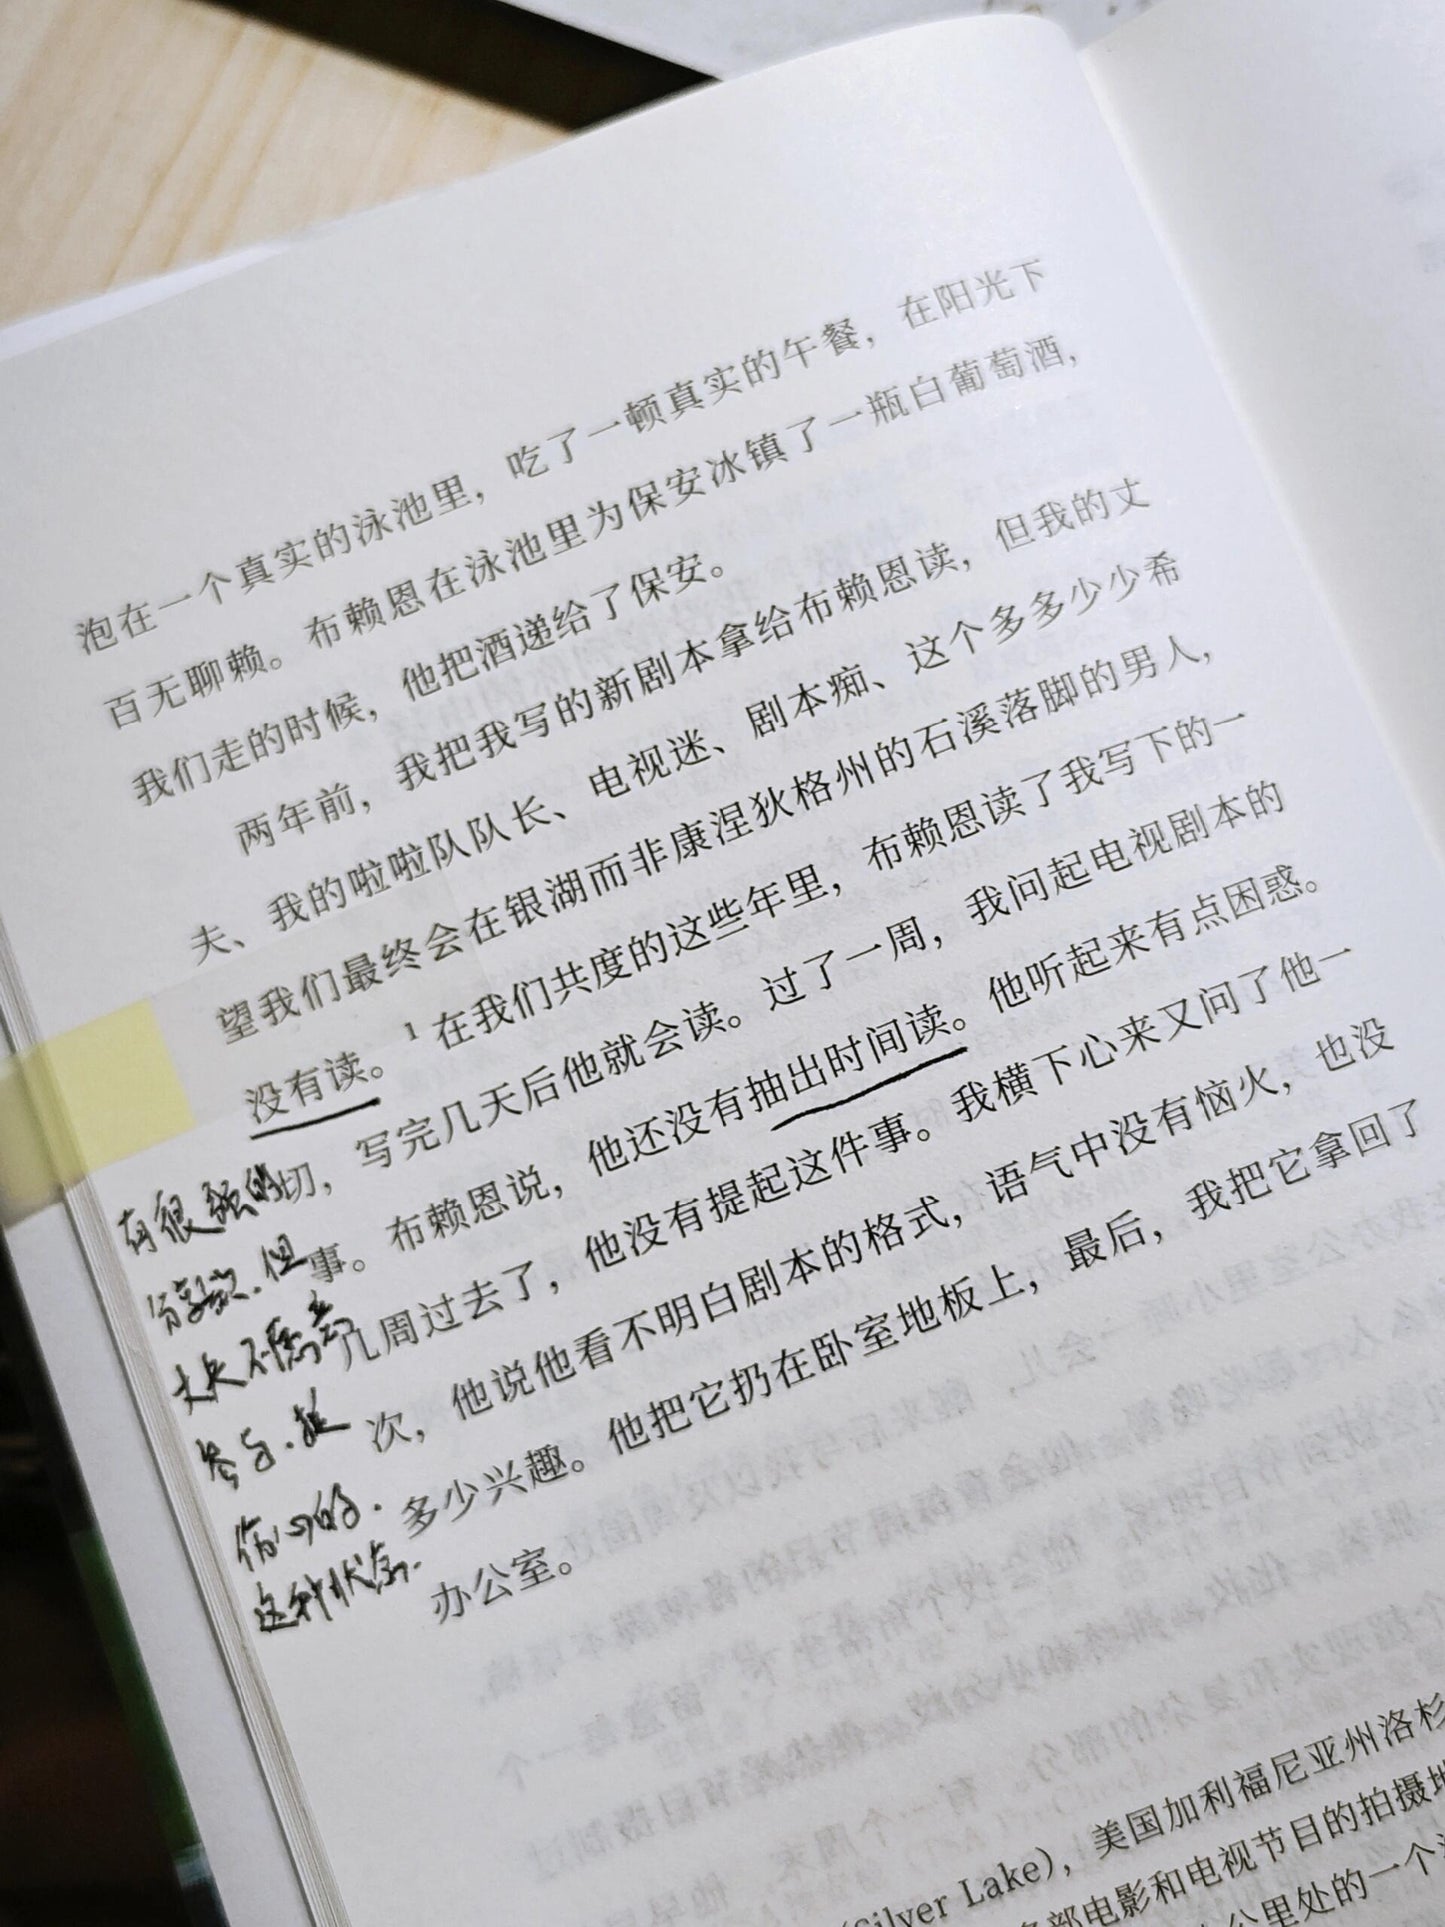 泡在一个真实的泳池里，吃了一顿真实的午餐，在阳光下
百无聊赖。布赖恩在泳池里为保安冰镇了一瓶白葡萄酒，
我们走的时候，他把酒递给了保安。
两年前，我把我写的新剧本拿给布赖恩读，但我的丈
夫、我的啦啦队队长、电视迷、剧本痴、这个多多少少希
望我们最终会在银湖而非康涅狄格州的石溪落脚的男人，
没有读。¹ 在我们共度的这些年里，布赖恩读了我写下的一
切，写完几天后他就会读。过了一周，我问起电视剧本的
事。布赖恩说，他还没有抽出时间读。他听起来有点困惑。
几周过去了，他没有提起这件事。我横下心来又问了他一
次，他说他看不明白剧本的格式，语气中没有恼火，也没
多少兴趣。他把它扔在卧室地板上，最后，我把它拿回了
办公室。
有很强的
分享欲．但
丈夫不愿意
参与．挺
伤心的．
这种状态．
(Silver Lake)，美国加利福尼亚州洛杉
多部电影和电视节目的拍摄地
公里处的一个